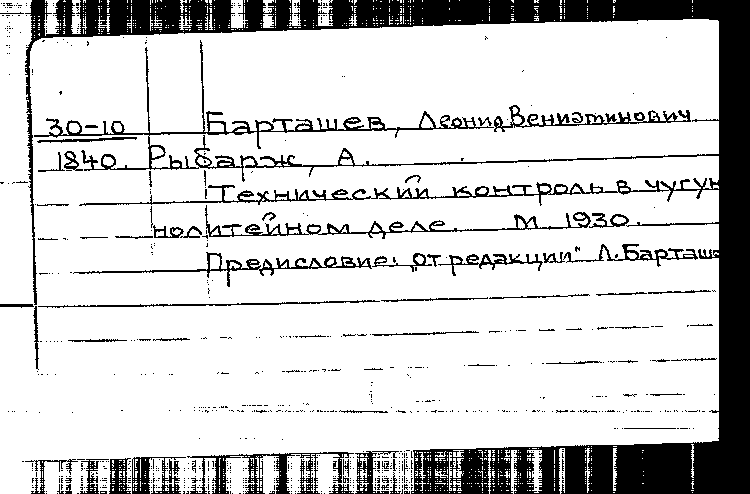 30-10 Барташев, Леонид Вениэтинович
1840. Рыбарж, А.
Технический контроль в чугун
нолитейном деле. М. 1930.
Предисловие: „от редакции" Л. Барташе